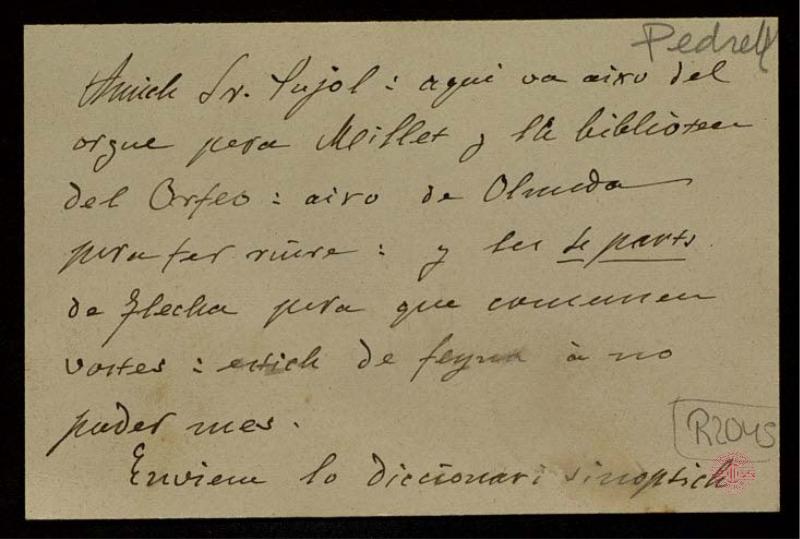 Pedrell
Amich Sr. Pujol: aquí va aixo del
orgue pera Millet y la biblioteca
del Orfeo: aixo de Olmeda
pera fer riure: y les 4 parts
de Flecha pera que comensen
vostes: estich de feyna à no
poder mes.
R2045
Enviem lo diccionari sinoptich